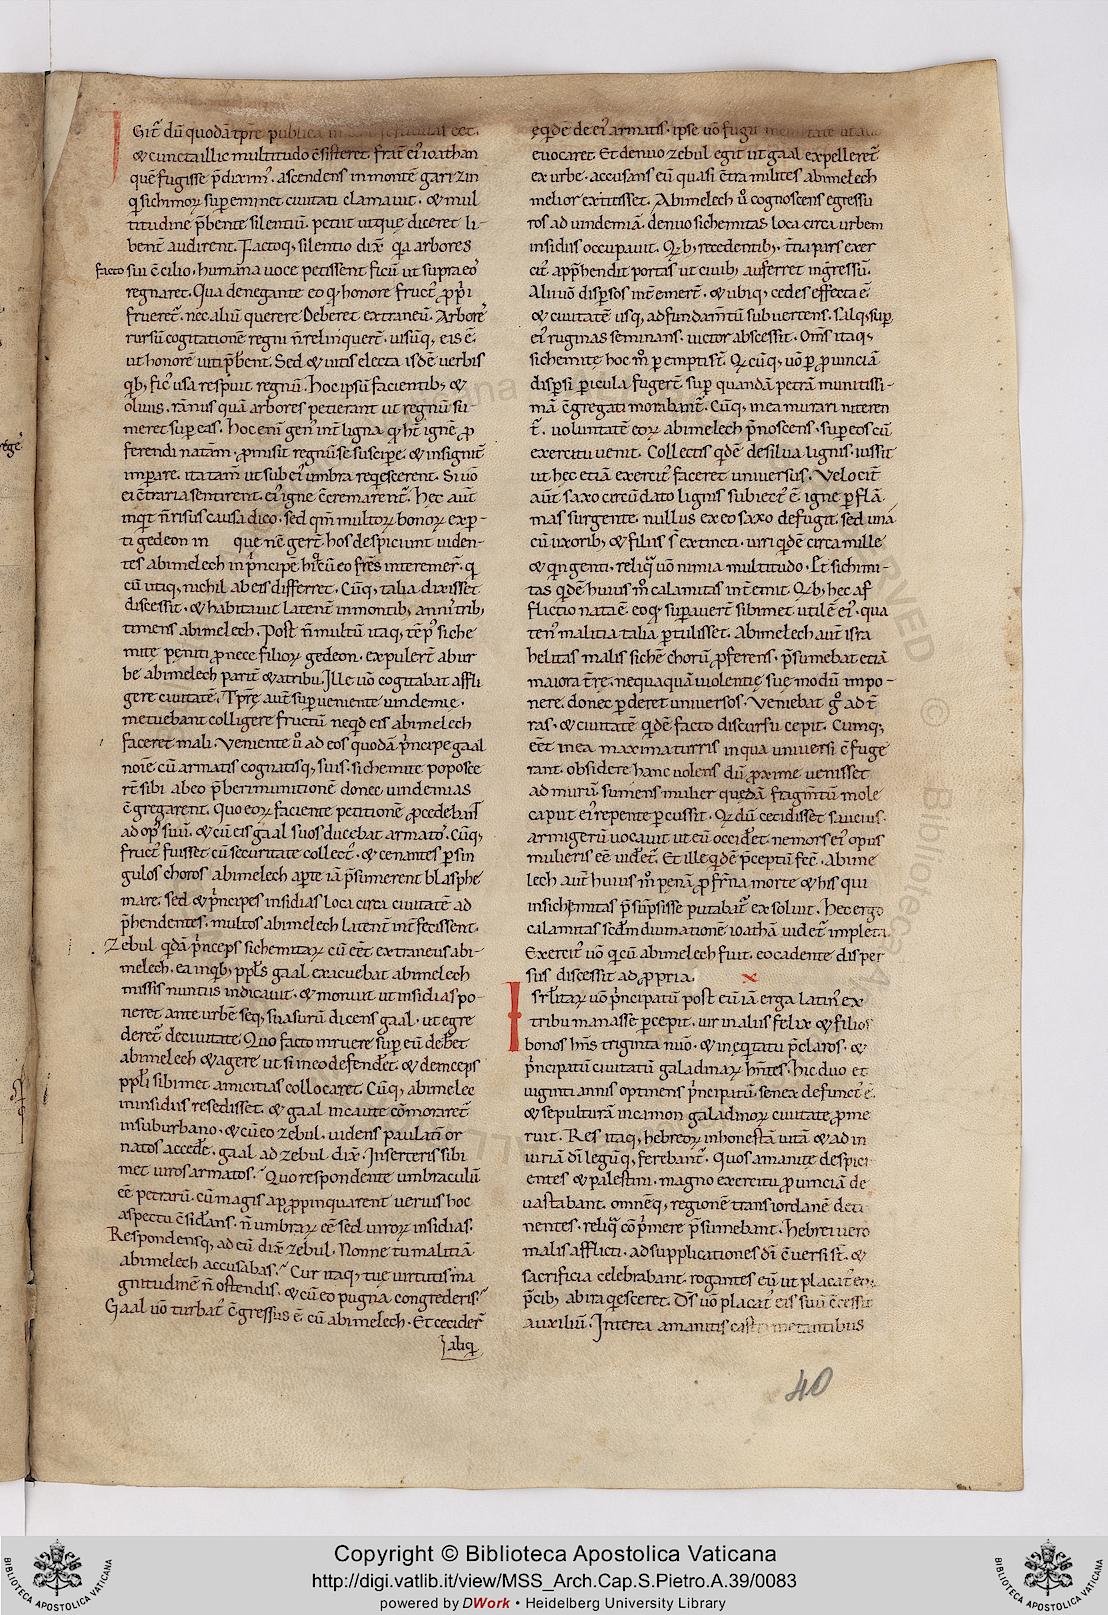 Git᷑ dū quodā tp̄re publica
⁊ cuncta illic multitudo c̄sisteret. frat̄ ei᷒ ioathan
quē fugisse p̄diximꝰ. ascendens in montē garizin
qͥ sichimoꝝ sup eminet ciuitati clamauit. ⁊ mul
titudine p̄bente silentiū. petiit utique diceret li-
bent̄ audirent. Factoq; silentio dix̄ qͥa arbores
facto sui c̄cilio. humana uoce petissent ficū ut supra eoꝰ
regnaret. Qua denegante eo qͥ honore fructꝰ ꝓpͥi
frueret᷑. nec aliū querere deberet extraneū. Arboreꝰ
rursū cogitationē regni n̄ relinquer̄t. uisūq; eis ē.
ut honorē uiti p̄bent. Sed ⁊ uitis electa isdē uerbis
qͥb; ficꝰ usa respuit regnū. Hoc ipsū facientib; ⁊
oliuis. rānus quā arbores petierant ut regnū su-
meret sup eas. hoc enī genꝰ int̄ ligna qͥ ht̄ ignē ꝓ
ferendi natā̄. ꝓmisit regnū se suscipe. ⁊ insignit̄
impare. ita tam̄ ut sub eiꝰ umbra reqͥescerent. Si uō
ei c̄traria sentirent. eiꝰ igne c̄cremarent᷑. Hęc aut̄
inqͥt n̄ risus causa dico. sed qm̄ multoꝝ bonoꝝ exp-
ti gedeon in que nē ger̄t. hos despiciunt uiden-
tes abimelech in p̄ncipē
cū utiq; nichil ab eis differret. Cūq; talia dixisset
discessit. ⁊ habitauit latent̄ in montib; annis trib;
timens abimelech. Post n̄ multū itaq; tēpꝰ siche
mitę penīti ꝓ nece filioꝝ gedeon. expuler̄t ab ur
be abimelech parit̄ ⁊ a tribu. Ille uō cogitabat affli
gere ciuitatē. Tp̄re aut̄ superueniente uindemie.
metuebant colligere fructū neqͥd eis abimelech
faceret mali. Veniente ū ad eos quodā p̄ncipe gaal
noīe cū armatis cognatisq; suis. sichemite poposce
rē sibi ab eo p̄beri munitionē donec uindemias
c̄gregarent. Quo eoꝝ faciente petitionē ꝓcedebant
ad opꝰ suū. ⁊ cū eis gaal suos ducebat armatoꝰ. Cūq;
fructꝰ fuisset cū securitate collectꝰ. ⁊ cenantes p sin
gulos choros abimelech apte iā p̄sumerent blasphe
mare. sed ⁊ p̄ncipes insidias loca circa ciuitatē ad
p̄hendentes. multos abimelech latent̄ int̄fecissent.
Zebul qͥdā p̄nceps sichemitaꝝ cū eēt extraneus abi-
melech. ea in qͥb; ppl̄s gaal exacuebat abimelech
missis nuntus indicauit. ⁊ monuit ut insidias po-
neret ante urbē seq; suasurū dicens gaal. ut egre
deret᷑ de ciuitate. Quo facto irruere sup eū deb̄et
abimelech ⁊ agere ut si in eo defend̄et. ⁊ deinceps
ppl̄i sibimet amicitias collocaret. Cūq; abimelec
in insidus resedisset. ⁊ gaal incaute cōmoraret᷑
in suburbano. ⁊ cū eo zebul. uidens paulatī or
natos acced̄e. gaal ad zebul dix̄. Inserteris sibi
met uiros armatos. Quo respondente umbraculū
eē petrarū. cū magis apꝓpinquarent uerius hoc
aspectu c̄sid̄ans. n̄ umbraꝝ eē sed uiroꝝ insidias.
Respondensq; ad eū dix̄ zebul. Nonne tu malitiā
abimelech accusabas. Cur itaq; tuę uirtutis ma
gnitudinē n̄ ostendis. ⁊ cū eo pugna congrederis.
Gaal uō turbatꝰ c̄gressus ē cū abimelech. Et cecider̄
aliqͥ
eqͥdē de eiꝰ armatis. ipse uō fugit
euocaret. Et denuo zebul egit ut gaal expelleret᷑
ex urbe. accusans eū quasi c̄tra milites abimelech
melior extitisset. Abimelech ū cognoscens egressu
ros ad uindemiā. denuo sichemitas loca circa urbem
insidiis occupauit. Qͥb; recedentib; t̄tia pars exer
citꝰ app̄hendit portas ut ciuib; auferret ingressū.
Alii uō dispersos int̄emer̄t. ⁊ ubiq; cedes effecta ē.
⁊ ciuitatē usq; ad fundam̄tū subuertens. salq; sup
eiꝰ ruginas seminans. uictor abscessit. Om̄s itaq;
sichemitę hoc m̄ pemptis̄t. Qͥcūq; uō p ꝓuinciā
dispsi picula fuger̄t. sup quandā petrā munitissi-
mā c̄gregati morabant᷑. Cūq; in ea murari niteren
t᷑. uoluntatē eoꝝ abimelech p̄noscens. sup eos cū
exercitu uenit. Collectis qͥdē de silua lignis. iussit
ut hęc etiā exercitꝰ faceret uniuersus. Velocit̄
aut̄ saxo circūdato lignis subiectꝰ ē igne p flā-
mas surgente. nullus ex eo saxo defugit. sed unā
cū uxorib; ⁊ filiis s̄t extincti. uiri qͥdē circa mille
⁊ qͥngenti. reliqͥ uō nimia multitudo. Et sichimi-
tas qͥdē huius m̄ calamitas int̄emit. Qͥb; hęc af
flictio nata ē. eo qͥ supauer̄t sibimet utilē eiꝰ. qua
tenꝰ malitia talia ptulisset. Abimelech aut̄ isra
helitas malis sichē chorū ꝓferens. p̄sumebat etiā
maiora t̄re. nequaquā uiolentię suę modū impo-
nere. donec pderet uniuersos. Veniebat gͦ ad t̄
ras. ⁊ ciuitatē qͥdē facto discursu cepit. Cumq;
eēt in ea maxima turris in qua uniuersi c̄fuge
rant. obsidere hanc uolens dū ꝓxime uenisset
ad murū. sumens mulier quędā fragm̄tū mole
caput eiꝰ repente pcussit. Qͥ dū cecidisset sauciꝰ.
armigerū uocauit ut eū occid̄et. ne mors eiꝰ opus
mulieris eē uid̄et᷑. Et ille qͥdē p̄ceptū fec̄. Abime
lech aut̄ huius m̄ penā ꝓ fr̄na morte ⁊ his qui
in sichemitas p̄sūpsisse putabat᷑ exsoluit. Hęc ergo
calamitas scd̄m diuinationē ioathā uidet᷑ impleta.
Exercitꝰ uō qͥ cū abimelech fuit. eo cadente disper
sus discessit ad ꝓpria.
x
Isrl̄itaꝝ uō p̄ncipatū post eū iā erga latinꝰ ex
tribu manasse pcepit. uir in aliis felix ⁊ filios
bonos hn̄s triginta nūo. ⁊ in eqͥtatu p̄claros. ⁊
p̄ncipatū ciuitatū galadinaꝝ hn̄tes. hic duo et
uiginti annis optinens p̄ncipatū. senex defunctꝰ ē.
⁊ sepulturā in camon galadinoꝝ ciuitate ꝓme
ruit. Res itaq; hebreoꝝ inhonestā uitā ⁊ ad in
iuriā dī legūq; ferebant᷑. Quos amanite despici
entes ⁊ palestini. magno exercitu ꝓuinciā de
uastabant. omnēq; regionē trans iordanē deti
nentes. reliqͥ cōp̄mere p̄sumebant. hebrei uero
malis afflicti. ad supplicationes dī c̄uersi s̄t. ⁊
sacrificia celebrabant. rogantes eū ut placatꝰ eoꝝ
p̄cib; ab ira qͥesceret. Ds̄ uō placatꝰ eis suū c̄cessit
auxiliū. Interea amanitis castra metantibus
40
Copyright © Biblioteca Apostolica Vaticana
http://digi.vatlib.it/view/MSS_Arch.Cap.S.Pietro.A.39/0083
powered by DWork • Heidelberg University Library